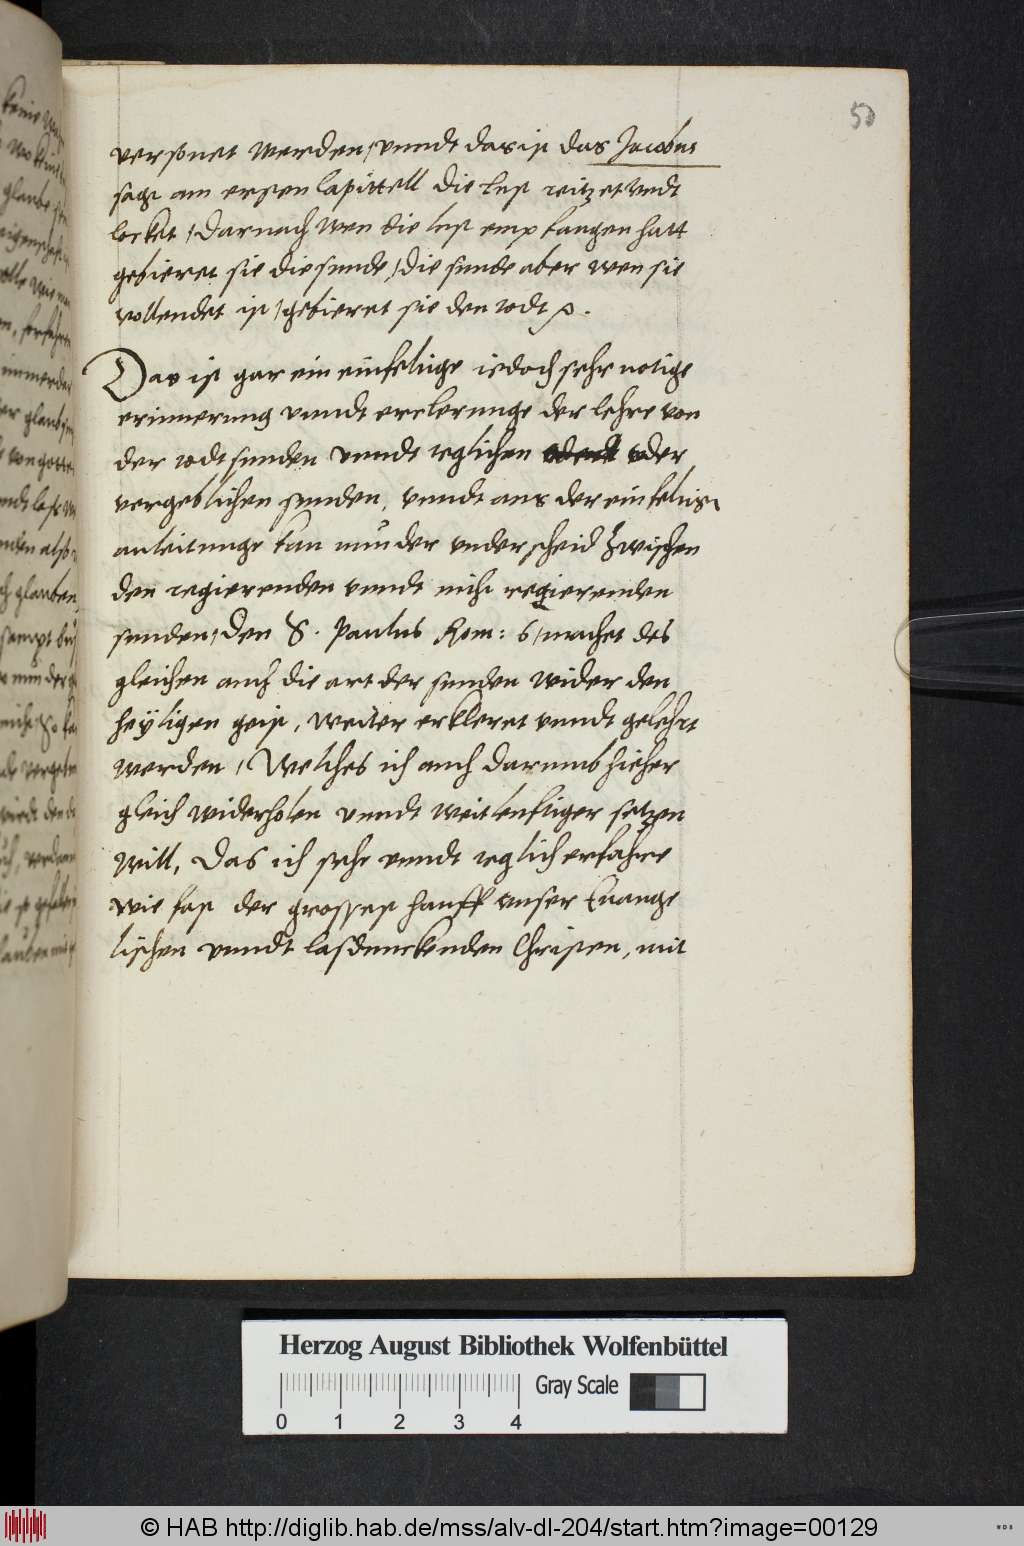 50
versonet werden / unndt das ist das Jacobus
sagt am ersten Capittell die lust reitzet undt
locket / Darnach wen die lust empfangen hatt
gebieret sie die sunde / die sunde aber wen sie
vollendet ist / gebieret sie den todt
Das ist gar ein einfeltige iedoch sehr notige
erinnerung unndt erclerunge der lehre von
der todtsunden unndt teglichen oder
vergeblichen sunden, unndt aus der einfeltigen
anleitunge kan nun der underscheid zwischen
den regierenden unndt nicht regierenden
sunden / den S. Paulus Rom: 6 / machet des
gleichen auch die art der sunden wider den
heyligen geist, weiter erkleret unndt gelehrt
werden / Welches ich auch darumb hieher
gleich widerholen unndt weitleuftiger setzen
will, Das ich sehe unndt teglich erfahre
wie fast der grossest hauff unser Euange
lischen unndt lasdunckenden Christen, mit
Herzog August Bibliothek Wolfenbüttel
Gray Scale
0 1 2 3 4
© HAB http://diglib.hab.de/mss/alv-dl-204/start.htm?image=00129